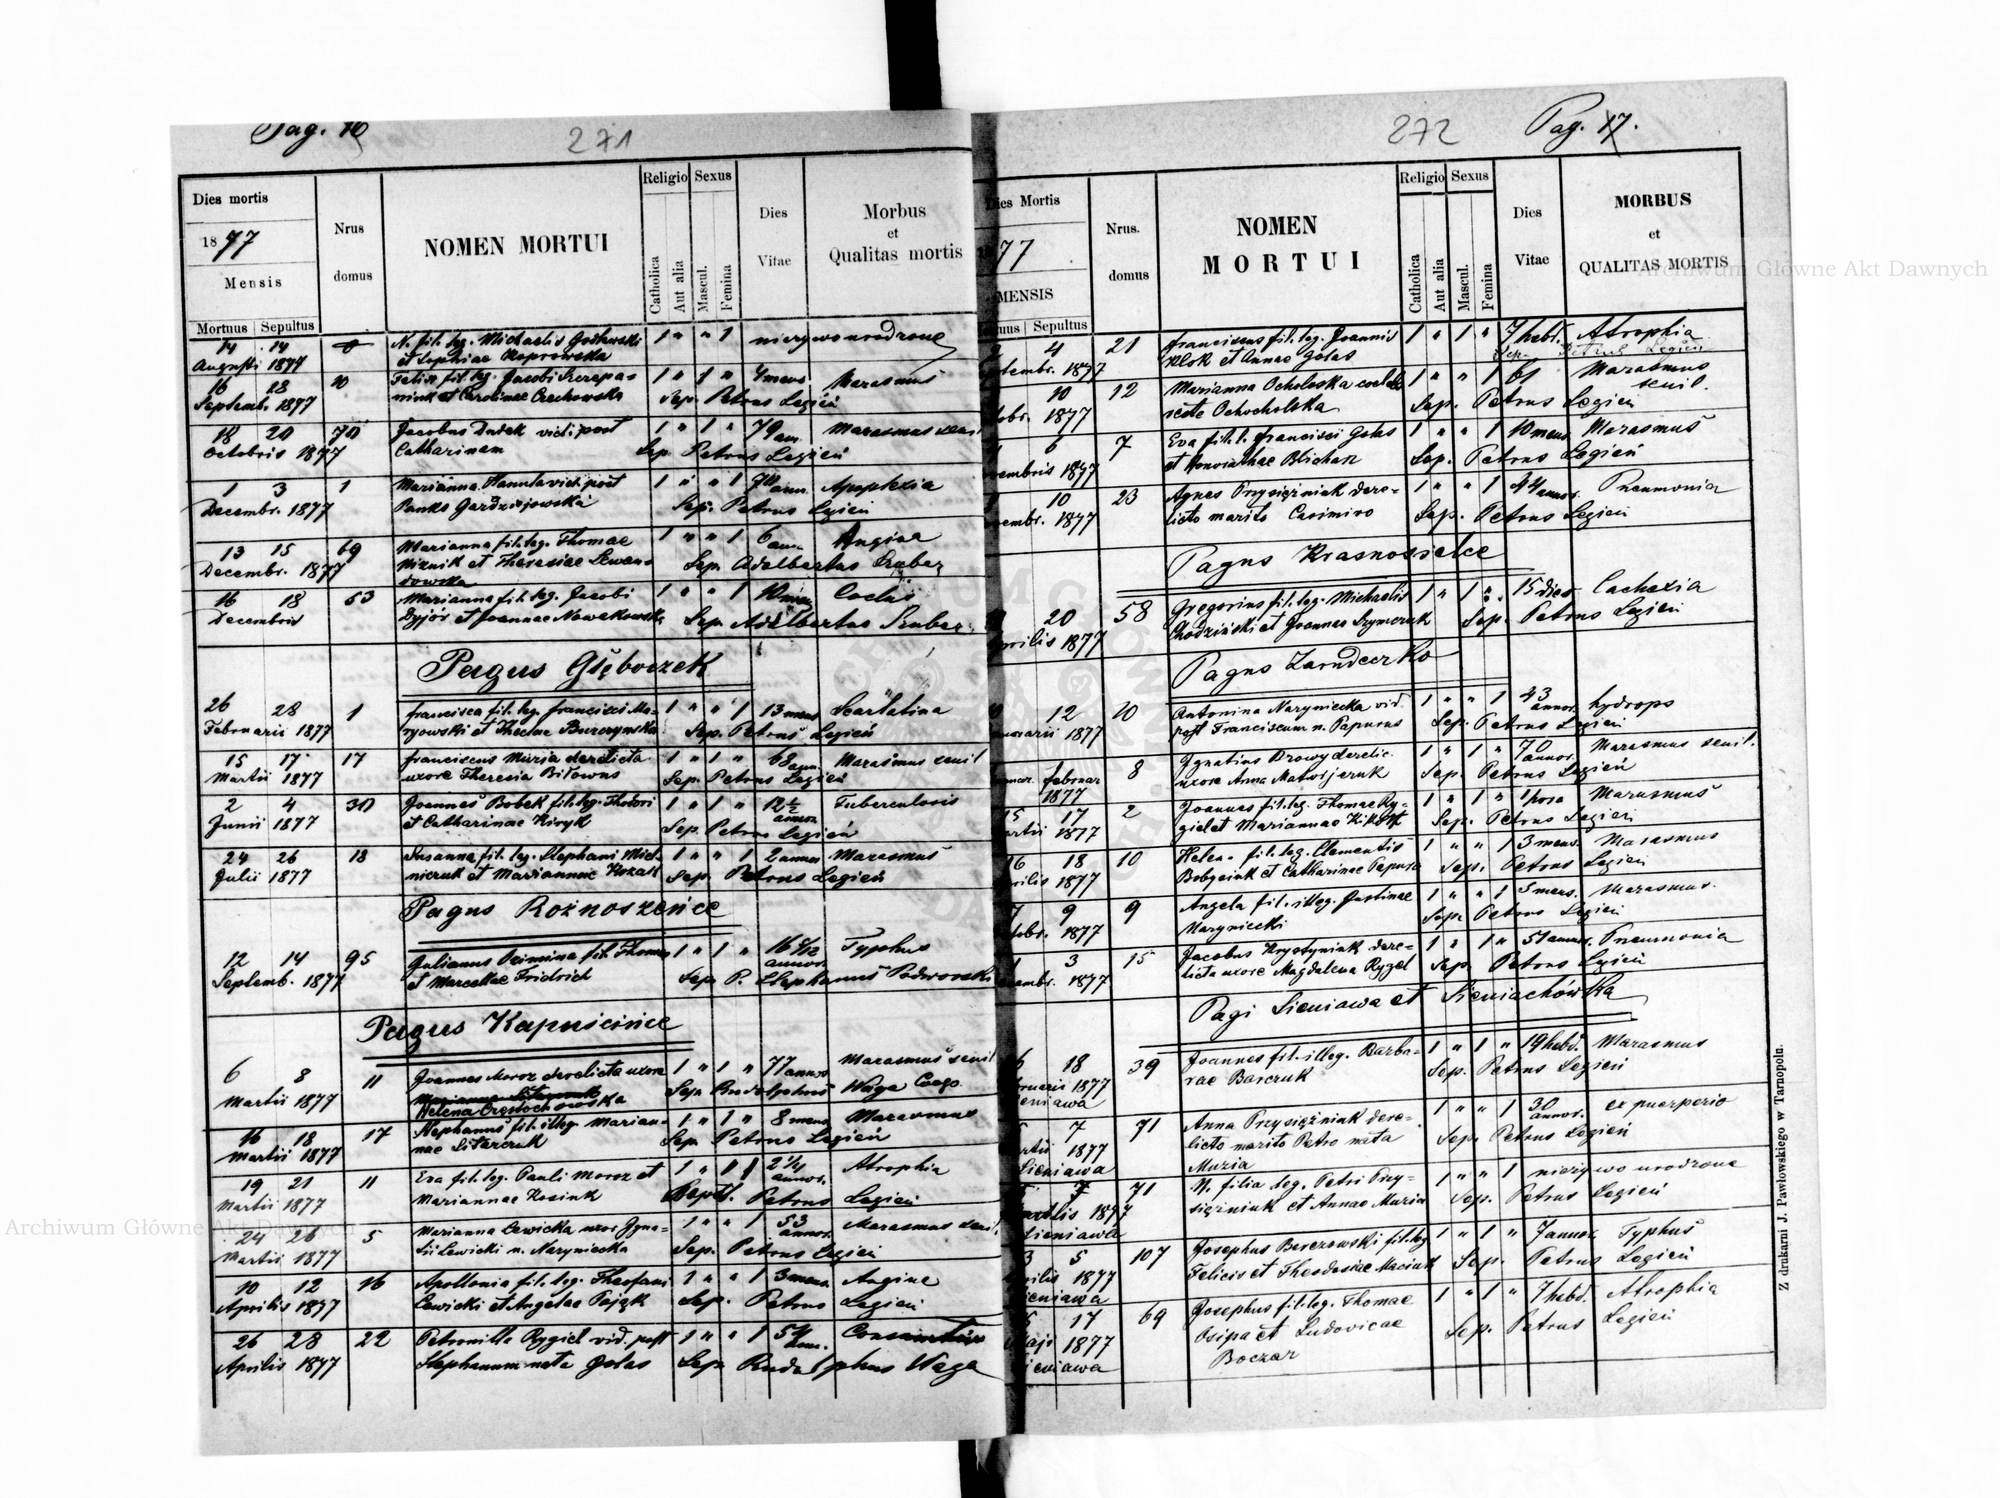 Pag. 16
271
Dies mortis
Nrus
domus
NOMEN MORTUI
Religio
Sexus
Catholica
Aut alia
Mascul.
Femina
Dies
Vitae
Morbus
et
Qualitas mortis
1877
Mensis
Mortuus Sepultus
14 14 N. fil. leg. Michaelis 1 " " 1 nieżywo urodzone
Augusti 1877 et Sophiae
16 18 10 Felix fil. leg. Jacobi 1 " 1 " 4 mens Marasmus
Septemb. 1877 et Carolinae Czechowska Sep. Petrus Legień
18 20 70 Jacobus Dudek vid. post 1 " 1 " 79 ann. Marasmus senil
Octobris 1877 Catharinam Sep. Petrus Legień
1 3 1 Marianna Hanula vid. post 1 " " 1 70 ann. Apoplexia
Decembr. 1877 Sep. Petrus Legień
13 15 69 Marianna fil. leg. Thomae 1 " " 1 6 ann. Angina
Decembr. 1877 et Theresiae Lewan- Sep. Adalbertus Szuber
dowska
16 18 53 Marianna fil. leg. Jacobi 1 " " 1 10 mens
Decembris et Joannae Nowakowska Sep. Adalbertus Szuber
Pagus Głęboczek
26 28 1 Francisca fil. leg. Francisci Ma- 1 " " 1 13 mens Scarlatina
Februarii 1877 ryowski et Theclae Burczynska Sep. Petrus Legień
15 17 17 Franciscus Muzia derelicta 1 " 1 " 68 ann. Marasmus senil
Martii 1877 uxore Theresia Biłowus Sep. Petrus Legień
2 4 30 Joannes Bobek fil. leg. Thodori 1 " 1 " 12 1/2 annor. Tuberculosis
Junii 1877 et Catharinae Kiryk Sep. Petrus Legień
24 26 18 Susanna fil. leg. Stephani 1 " " 1 2 annor Marasmus
Julii 1877 et Mariannae Kozak Sep. Petrus Legień
Pagus Rożnoszeńce
12 14 95 Julianus Ozimina fil. Thomae 1 " 1 " 16 annor. Typhus
Septemb. 1877 et Marcellae Fridrich Sep. P. Stephanus Podworski
Pagus Kapuścińce
6 8 11 Joannes Moroz derelicta uxore 1 " 1 " 77 annor Marasmus senil
Martii 1877 Helena Częstochowska Sep. Rudolphus Waga Coop.
16 18 17 Stephanus fil. illeg. Marian- 1 " 1 " 8 mens Marasmus
Martii 1877 nae Sep. Petrus Legień
19 21 11 Eva fil. leg. Pauli Moroz et 2 1/4 annor. Atrophia
Martii 1877 Mariannae Petrus Legień
24 26 5 Marianna Lewicka uxor Igna- 1 " " 1 53 annor. Marasmus senil.
Martii 1877 tii Lewicki n. Naryniecka Sep. Petrus Legień
10 12 16 Apollonia fil. leg. Theofani 1 " " 1 3 mens. Angina
Aprilis 1877 Lewicki et Angelae Pająk Sep. Petrus Legień
26 28 22 Petronilla Rygiel vid. post 1 " " 1
Aprilis 1877 Stephanum nata Golas Sep. Rudolphus Waga
272
Pag. 17.
Dies Mortis
Nrus.
domus
NOMEN
MORTUI
Religio
Sexus
Catholica
Aut alia
Mascul.
Femina
Dies
Vitae
MORBUS
et
QUALITAS MORTIS
77
MENSIS
Sepultus
4 21 Franciscus fil. leg. Joannis 1 " 1 " 7 hebd. Atrophia
1877 Klok et Annae Golas Sep. Petrus Legień
10 12 Marianna 1 " " 1 61 Marasmus senil.
1877 Sep. Petrus Legień
6 7 Eva fil. l. Francisci Golas 1 " " 1 10 mens. Marasmus
1877 et Sep. Petrus Legień
10 23 Agnes Przysiężniuk dere- 1 " " 1 44 annor. Pneumonia
1877 licto marito Casimiro Sep. Petrus Legień
Pagus Krasnosielce
20 58 Gregorius fil. leg. Michaelis 1 " 1 " 15 dies Cachexia
Aprilis 1877 et Joannae Szymczuk Sep. Petrus Legień
Pagus Zarudeczko
12 10 Antonina Naryniecka vid. 1 " " 1 43 annor. hydrops
1877 post Franciscum n. Papuras Sep. Petrus Legień
februar 8 Ignatius Drowy derelic. 1 " 1 " 70 annor. Marasmus senil.
1877 uxore Anna Sep. Petrus Legień
15 17 2 Joannes fil. leg. Thomae Ry- 1 " 1 " 1 hora Marasmus
Martii 1877 giel et Mariannae Sep. Petrus Legień
16 18 10 Helena fil. leg. Clementis 1 " " 1 3 mens. Marasmus
Aprilis 1877 et Catharinae Papura Sep. Petrus Legień
7 9 9 Angela fil. illeg. Justinae 1 " " 1 5 mens. Marasmus.
1877 Naryniecki Sep. Petrus Legień
1 3 15 Jacobus Krystyniuk dere- 1 " 1 " 51 annor. Pneumonia
1877 licta uxore Magdalena Rygel Sep. Petrus Legień
Pagi Sieniawa et Sieniachówka
18 39 Joannes fil. illeg. Barba- 1 " 1 " 19 hebd. Marasmus
1877 rae Sep. Petrus Legień
Sieniawa
7 71 Anna Przysiężniuk dere- 1 " " 1 30 annor. ex puerperio
1877 licto marito Petro nata Sep. Petrus Legień
Sieniawa Muzia
7 71 N. filia leg. Petri Przy- 1 " " 1 nieżywo urodzone
1877 siężniuk et Annae Muzia Sep. Petrus Legień
Sieniawa
3 5 107 Josephus Berezowski fil. leg 1 " 1 " 7 annor Typhus
Aprilis 1877 Felicis et Theodosiae Sep. Petrus Legień
Sieniawa
17 69 Josephus fil. leg. Thomae 1 " 1 " 7 hebd. Atrophia
Maji 1877 Osipa et Ludovicae Sep. Petrus Legień
Sieniawa Boczar
Z drukarni J. Pawłowskiego w Tarnopolu.
Archiwum Główne Akt Dawnych
Archiwum Główne Akt Dawnych